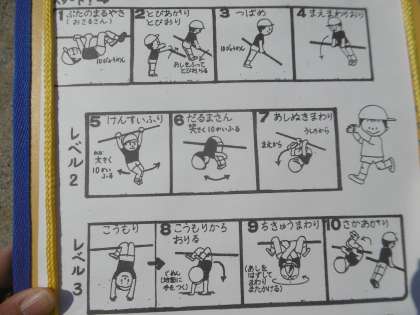 1 ぶたのまるやき
(おさるさん)
10びょうかん
2 とびあがり
とびおり
あしをふって
とびおりる
3 つばめ
10びょうかん
4 まえまわりおり
レベル2
5 けんすいふり
大きく
10かい
ふる
6 だるまさん
大きく10かいふる
7 あしぬきまわり
まえから
うしろから
レベル3
こうもり
8 こうもりから
おりる
(地面に
手をつく)
9 ちきゅうまわり
(あしを
はずして
まわり
またかける)
10 さかあがり